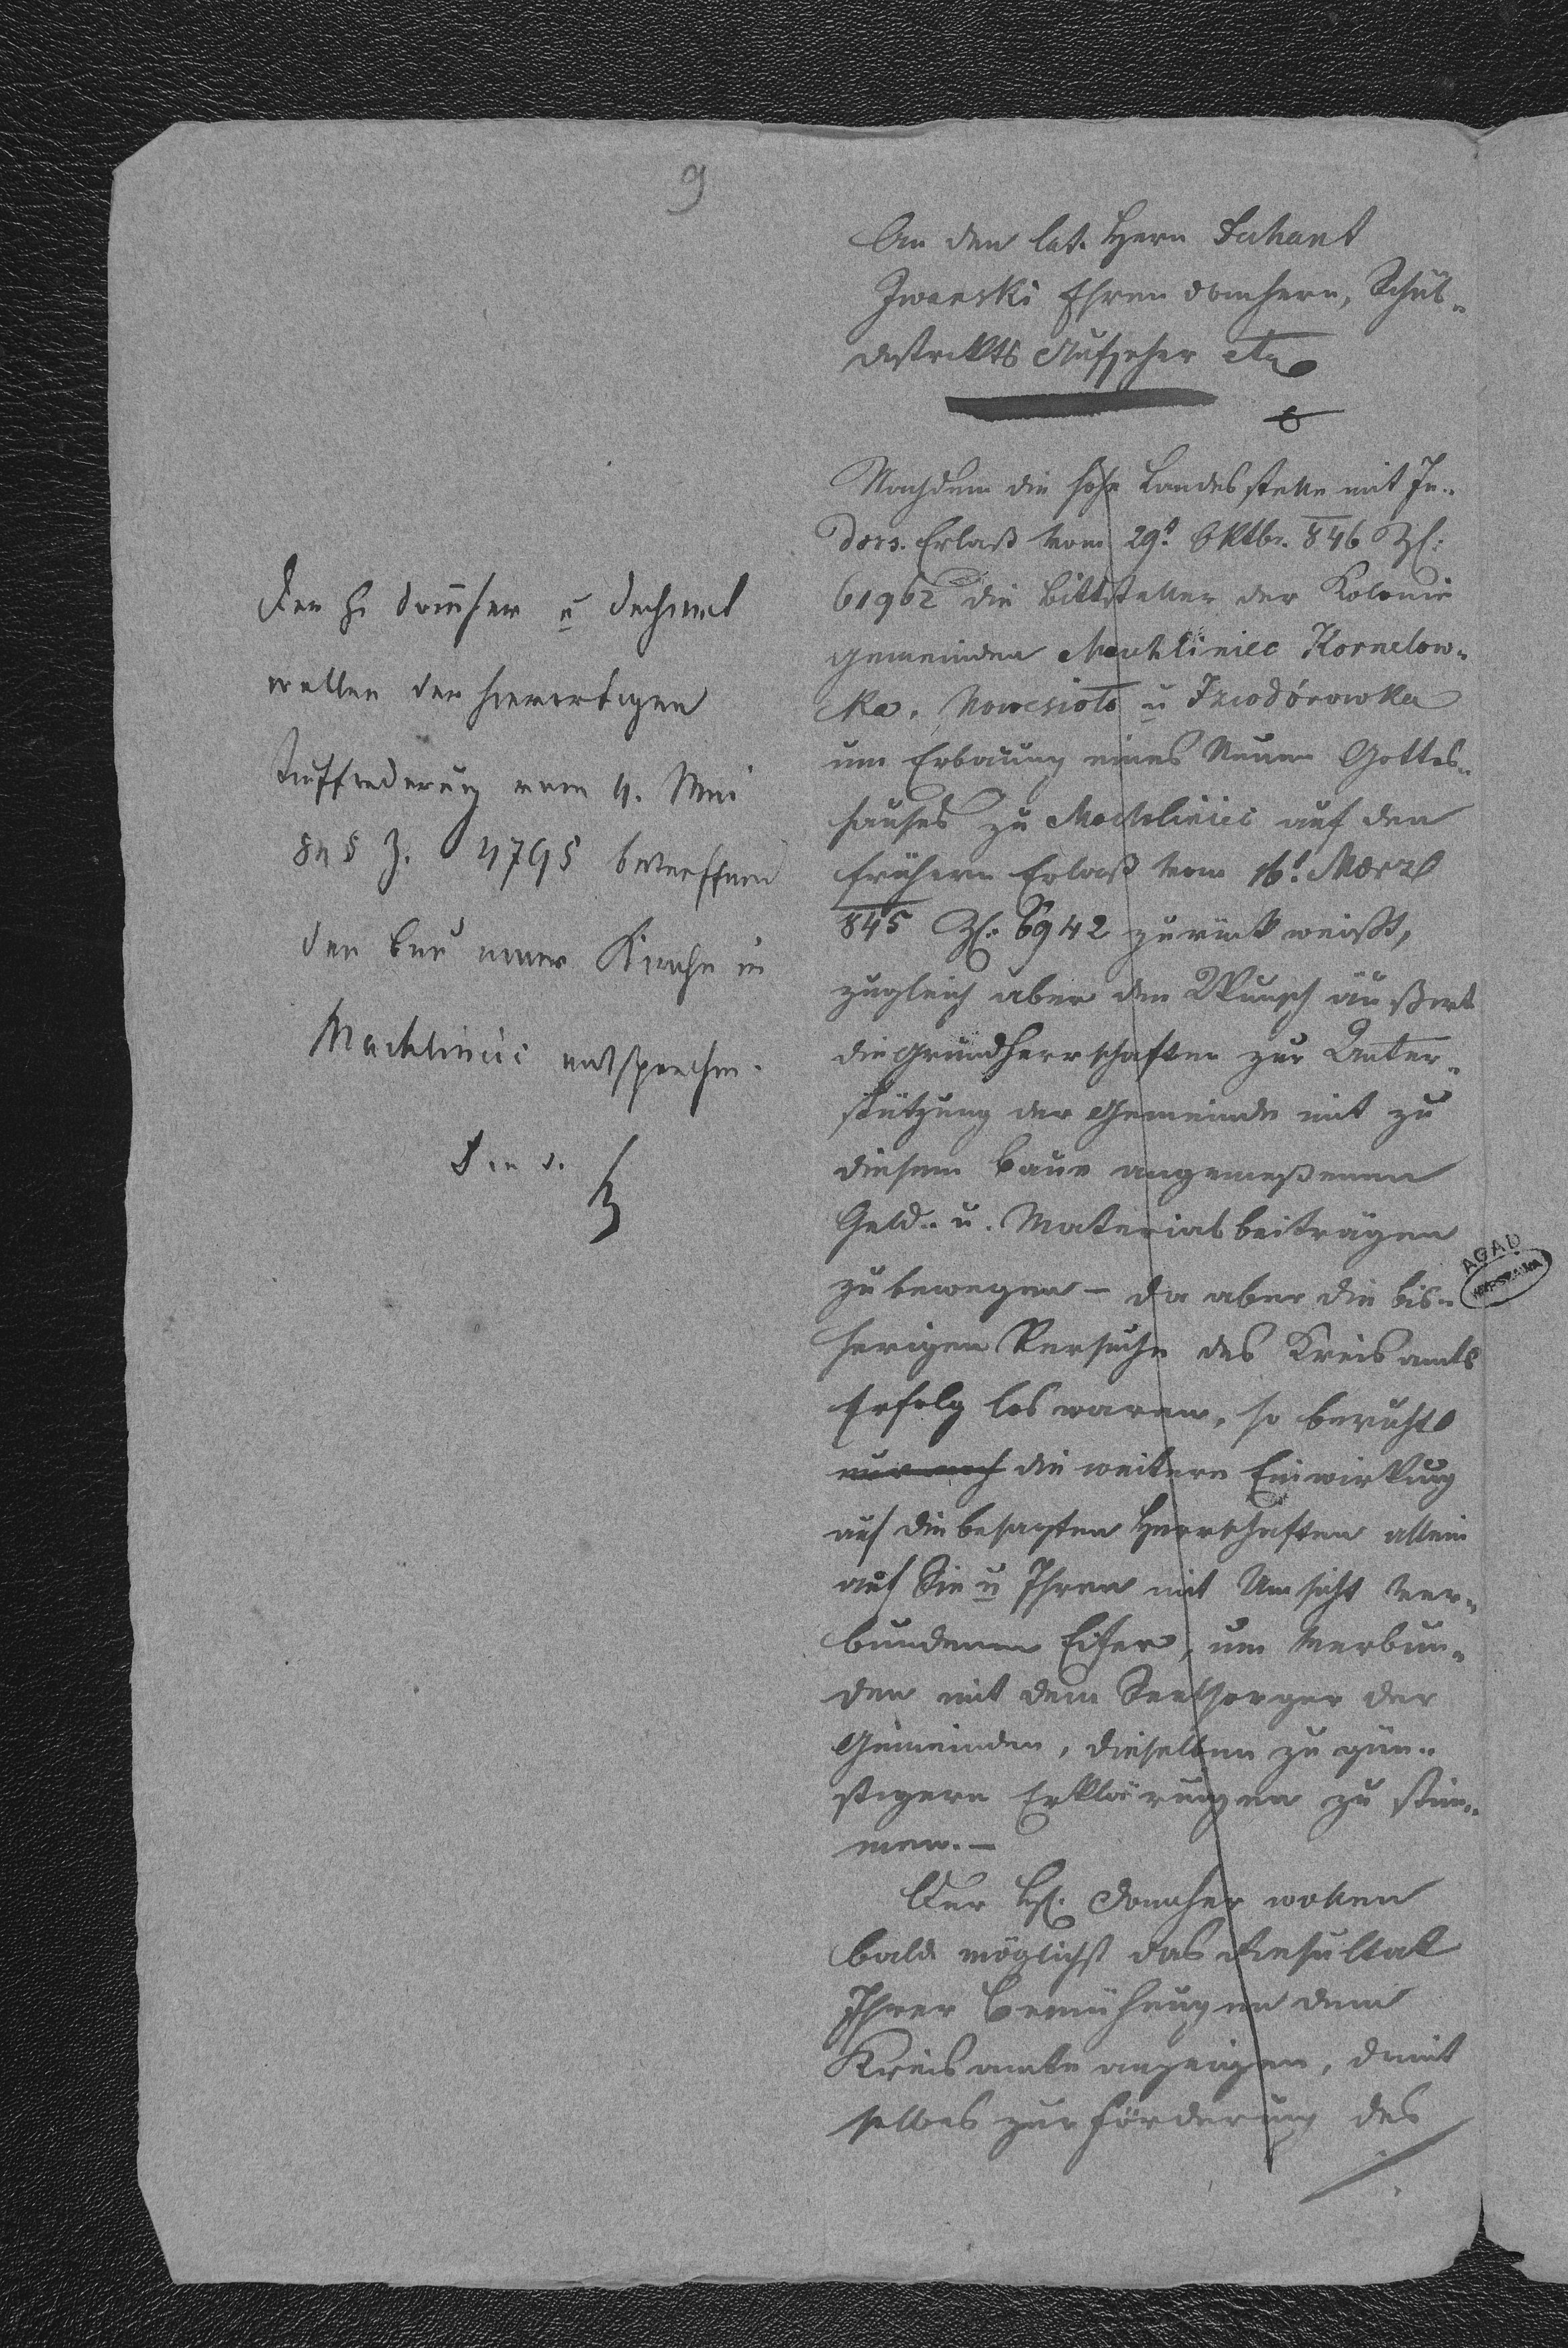 9
An den lat. Herrn Dechant
Iwanski Ehren Domherrn, Schul-
distrikts Aufseher etc
Nachdem die hohe Landesstelle mit In-
dors. Erlaß vom 29t. Oktbr. 846 Zl:
61962 die Bittsteller der Kolonie
gemeinden Machliniec Kornelow-
ka, Nowesioło u Izwodórowka
um Erbauung eines Neuen Gottes-
hauses zu Machliniec auf den
frühern Erlaß vom 16t. Maerz
845 Zl. 6942 zurückweißt,
zugleich aber den Wunsch äußert
die Grundherrschaften zur Unter-
stützung der Gemeinde mit zu
diesem Baue angemeßenen
Geld- u. Materialbeiträgen
zu bewegen – da aber die bis-
herigen Versuche des Kreisamts
Erfolg los waren, so beruht
nur noch die weitere Einwirkung
auf die besagten Herrschaften allein
auf Sie u Ihren mit Umsicht ver-
bundenen Eifer, um verbun-
den mit dem Seelsorger der
Gemeinden, dieselben zu gün-
stigern Erklärungen zu stim-
men. –
Der H. Domherr wollen
bald möglichst das Resultat
Ihrer Bemühungen dem
Kreisamte anzeigen, damit
selbes zur Förderung des
Der H. Domherr u Dechant
wollen der hierortigen
Aufforderung vom 4. Mai
845 Z. 4795 betreffend
den Bau einer Kirche in
Machliniec entsprechen.
AGAD
WARSZAWA